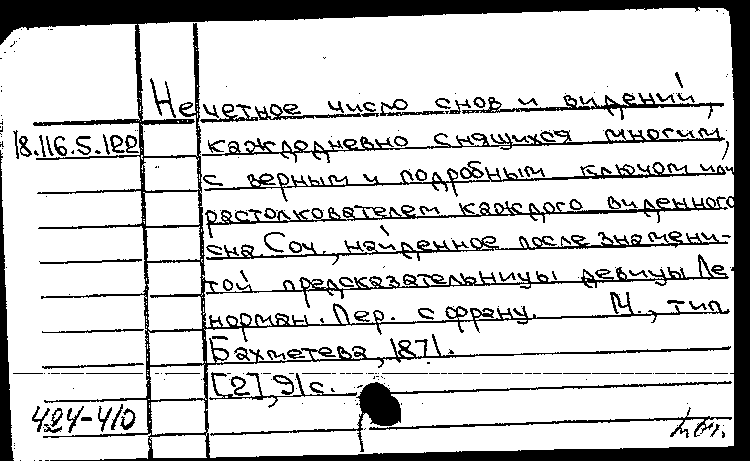 Нечетное число снов и видений,
18.116.5.122 каждодневно снящихся многим,
с верным и подробным ключом или
растолкователем каждого виденного
сна. Соч., найденное после знамени-
той предсказательницы девицы Ле-
норман. Пер. с франц. М., тип.
Бахметева, 1871.
[2], 91 с.
424-410